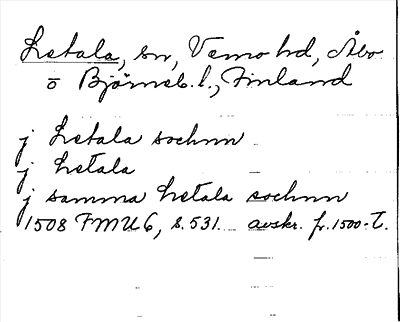 Letala, sn, Vemo hd, Åbo
o Björneb. l., Finland
j Letala sochnn
j Letala
j samma Letala sochnn
1508 FMU 6, s. 531. avskr. fr. 1500-t.